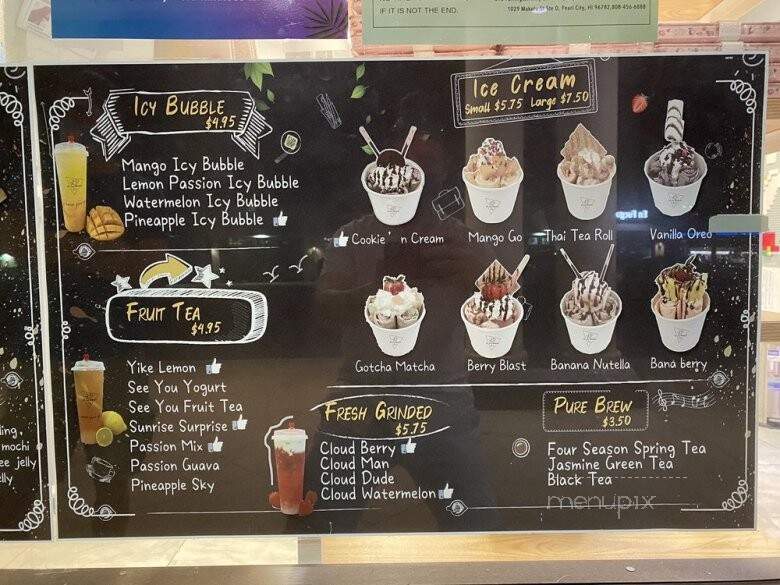 IF IT IS NOT THE END.
Pearl City, HI 96782, 808-456-6888
Icy Bubble
$4.95
Mango Icy Bubble
Lemon Passion Icy Bubble
Watermelon Icy Bubble
Pineapple Icy Bubble
Ice Cream
Small $5.75 Large $7.50
Cookie'n Cream
Mango Go
Thai Tea Roll
Vanilla Oreo
Gotcha Matcha
Berry Blast
Banana Nutella
Bana berry
Fruit Tea
$4.95
Yike Lemon
See You Yogurt
See You Fruit Tea
Sunrise Surprise
Passion Mix
Passion Guava
Pineapple Sky
Fresh Grinded
$5.75
Cloud Berry
Cloud Man
Cloud Dude
Cloud Watermelon
Pure Brew
$3.50
Four Season Spring Tea
Jasmine Green Tea
Black Tea
mochi
jelly
menupix